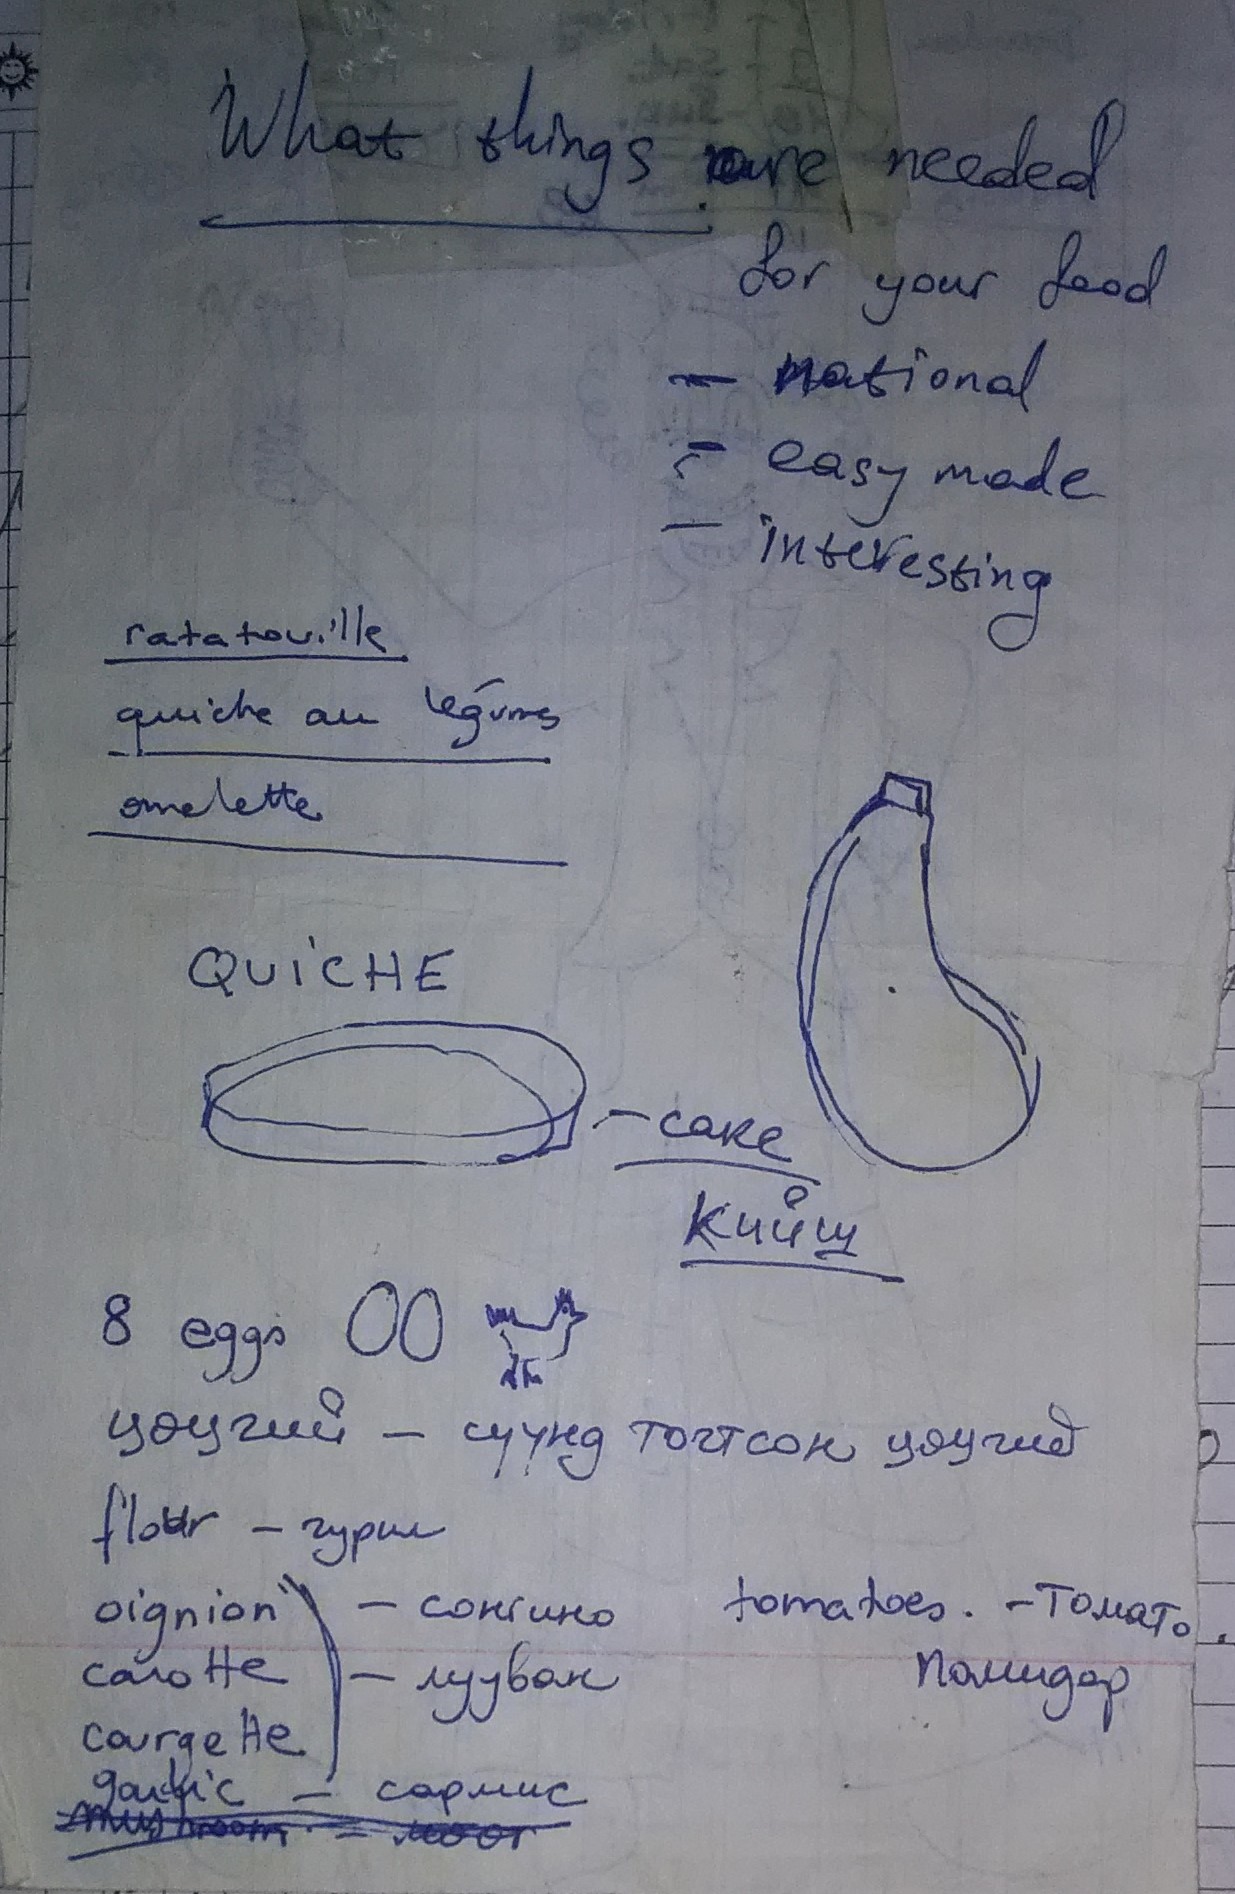 What things are needed
for your food
- national
- easy made
- interesting
ratatouille
quiche au légumes
omelette
QUiCHE
- cake
Кийш
8 eggs
цөцгий - сүүнд тогтсон цөцгий
flour - гурил
oignion - сонгино
tomatoes. - Томато.
carotte - лууван
Помидор
courgette
garlic - сармис
mushroom - мөөг